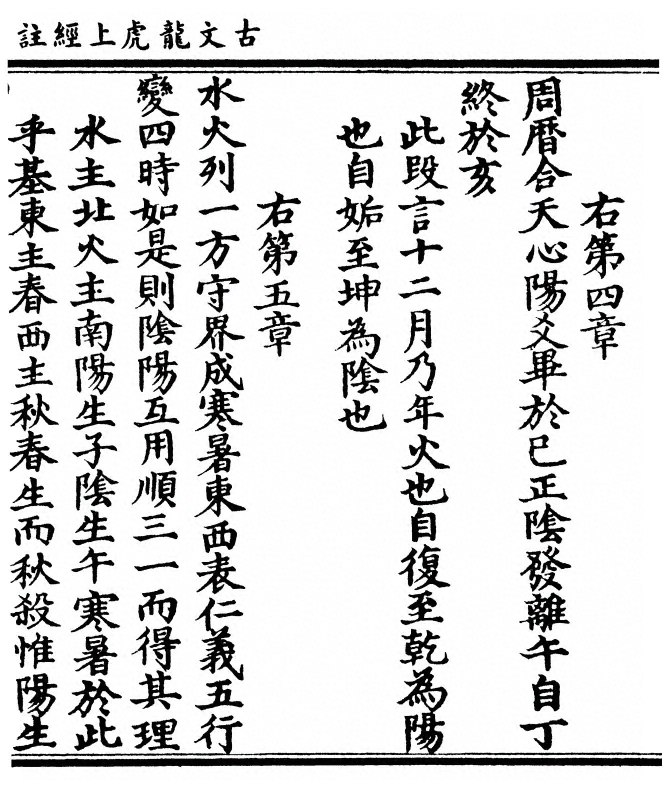 古文龍虎上經註
右第四章
周曆合天心陽爻畢於巳正陰發離午自丁
終於亥
此段言十二月乃年火也自復至乾為陽
也自姤至坤為陰也
右第五章
水火列一方守界成寒暑東西表仁義五行
變四時如是則陰陽互用順三一而得其理
水主北火主南陽生子陰生午寒暑於此
乎基東主春西主秋春生而秋殺惟陽生